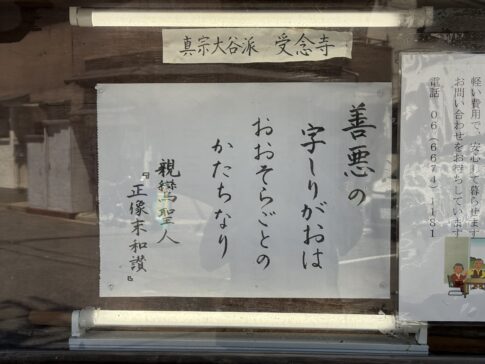 真宗大谷派 受念寺
善悪の
字しりがおは
おおそらごとの
かたちなり
親鸞聖人
『正像末和讃』
軽い費用で、安心して暮らせます
お問い合わせをお待ちしています
電話 06(6672)1131